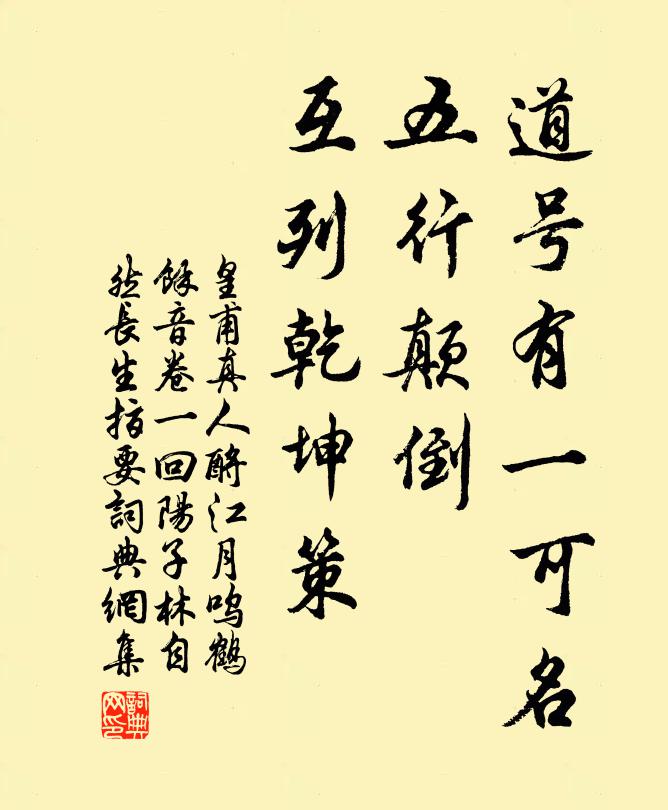 道号有一可名
五行颠倒
互列乾坤策
皇甫真人酹江月鸣鹤
馀音卷一回陽子林自
然長生指要詞典網集
詞典
网印